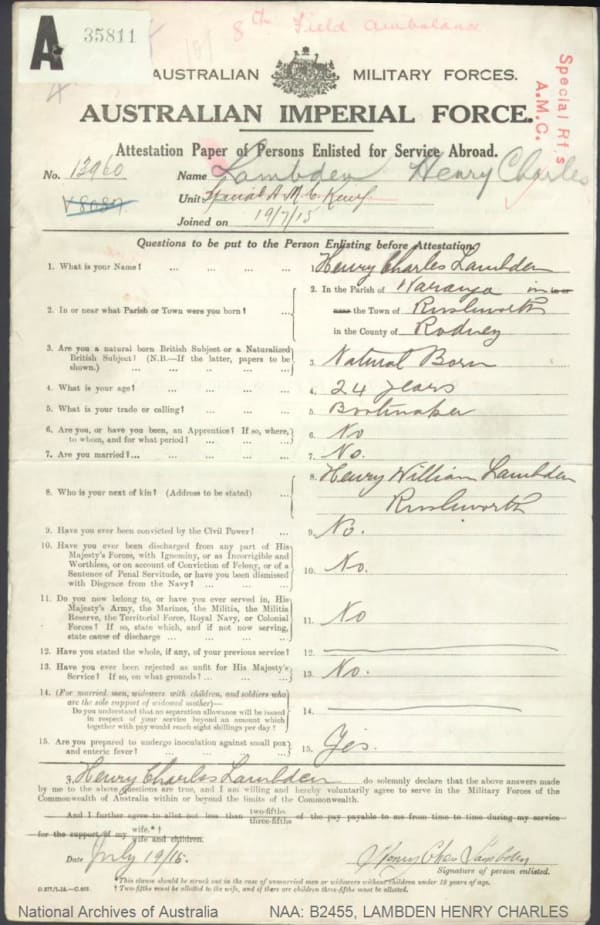 A 35811
8th Field Ambulance
AUSTRALIAN MILITARY FORCES.
AUSTRALIAN IMPERIAL FORCE.
Special Rfts
A.M.C.
Attestation Paper of Persons Enlisted for Service Abroad.
No. 12960 Name Lambden Henry Charles
Unit Special A.M.C. Reinf
Joined on 19/7/15
Questions to be put to the Person Enlisting before Attestation.
1. What is your Name? ... ... ... ... 1. Henry Charles Lambden
2. In or near what Parish or Town were you born? ... 2. In the Parish of Waranga in
the Town of Rushworth
in the County of Rodney
3. Are you a natural born British Subject or a Naturalized
British Subject? (N.B.—If the latter, papers to be
shown.) ... ... ... ... 3. Natural Born
4. What is your age? ... ... ... ... 4. 24 years
5. What is your trade or calling? ... ... ... 5. Bootmaker
6. Are you, or have you been, an Apprentice? If so, where,
to whom, and for what period? ... ... ... 6. No
7. Are you married?... ... ... ... ... 7. No.
8. Who is your next of kin? (Address to be stated) ... 8. Henry William Lambden
Rushworth
9. Have you ever been convicted by the Civil Power? ... 9. No.
10. Have you ever been discharged from any part of His
Majesty's Forces, with Ignominy, or as Incorrigible and
Worthless, or on account of Conviction of Felony, or of a
Sentence of Penal Servitude, or have you been dismissed
with Disgrace from the Navy? ... ... ... 10. No.
11. Do you now belong to, or have you ever served in, His
Majesty's Army, the Marines, the Militia, the Militia
Reserve, the Territorial Force, Royal Navy, or Colonial
Forces? If so, state which, and if not now serving,
state cause of discharge ... ... ... ... 11. No
12. Have you stated the whole, if any, of your previous service? 12.
13. Have you ever been rejected as unfit for His Majesty's
Service? If so, on what grounds? ... ... ... 13. No.
14. (For married men, widowers with children, and soldiers who
are the sole support of widowed mother)—
Do you understand that no separation allowance will be issued
in respect of your service beyond an amount which
together with pay would reach eight shillings per day? 14.
15. Are you prepared to undergo inoculation against small pox
and enteric fever? ... ... ... ... 15. Yes.
I, Henry Charles Lambden do solemnly declare that the above answers made
by me to the above questions are true, and I am willing and hereby voluntarily agree to serve in the Military Forces of the
Commonwealth of Australia within or beyond the limits of the Commonwealth.
And I further agree to allot not less than two-fifths
three-fifths of the pay payable to me from time to time during my service
for the support of my wife.*†
wife and children.
Date July 19/15. Henry Chas Lambden
Signature of person enlisted.
*This clause should be struck out in the case of unmarried men or widowers without children under 18 years of age.
†Two-fifths must be allotted to the wife, and if there are children three-fifths must be allotted.
National Archives of Australia NAA: B2455, LAMBDEN HENRY CHARLES